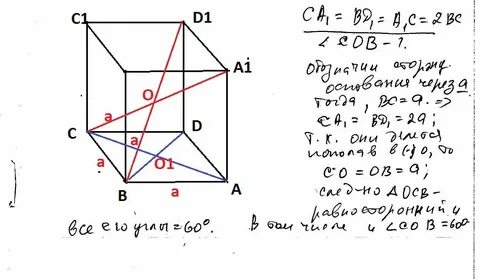 C1
D1
A1
O
a
C
a
D
a
O1
B
a
A
CA₁ = BD₁ = A₁C = 2BC
∠COB - ?
Обозначим сторону
основания через a
тогда, BC = a. =>
CA₁ = BD₁ = 2a;
т.к. они делятся
пополам в (·) O, то
CO = OB = a;
следно ΔOCB -
равносторонний и
все его углы = 60°.
В том числе и ∠COB = 60°